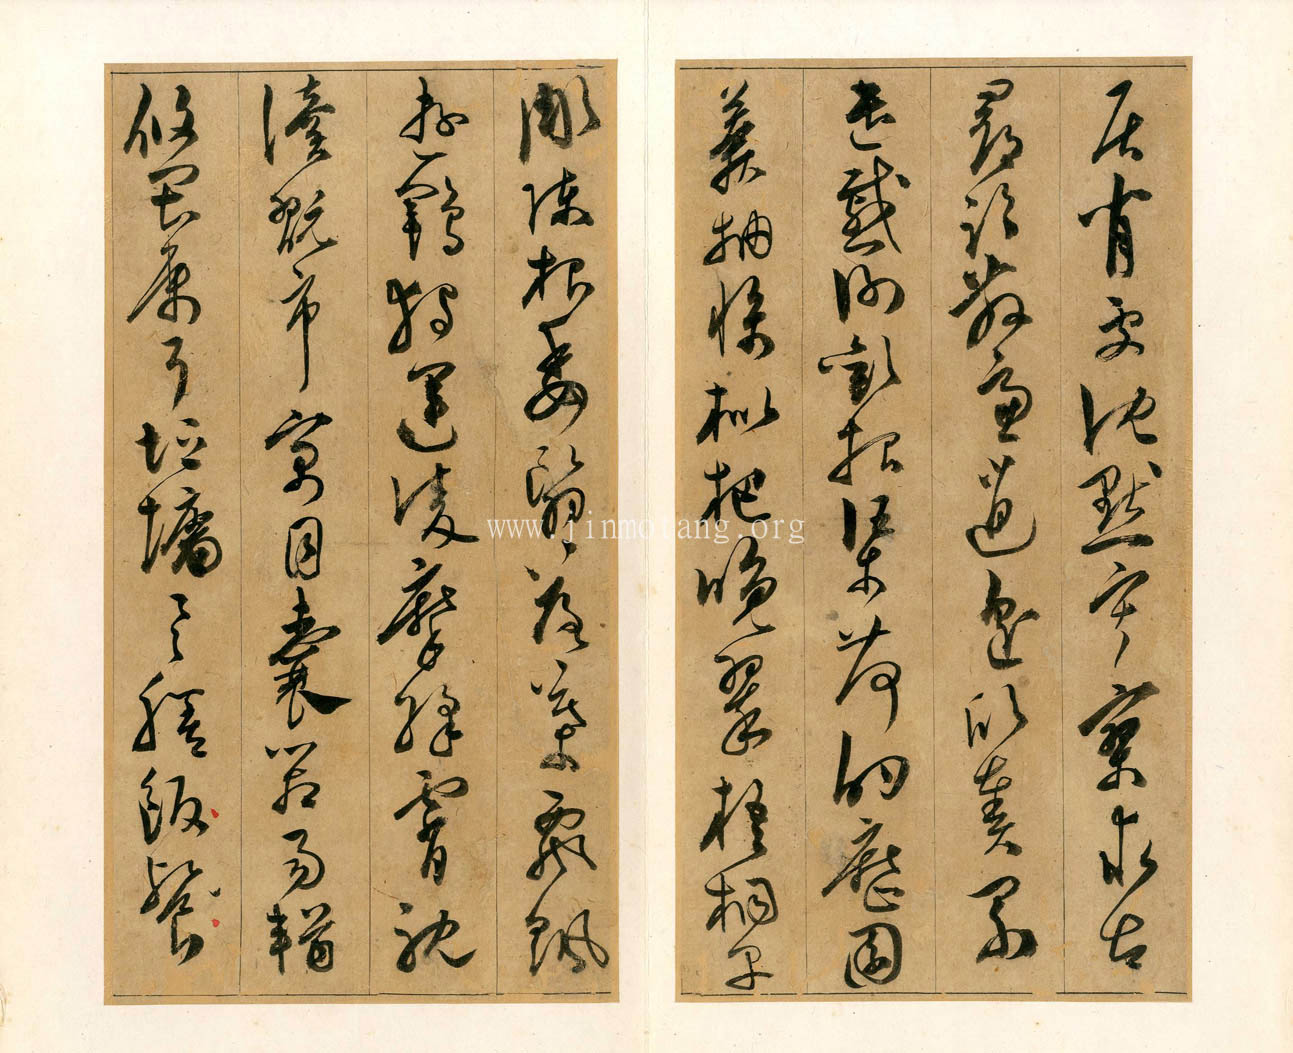 居閑處沉默寂寥求古
尋論散慮逍遙欣奏累
遣慼謝歡招渠荷的歷園
莽抽條枇杷晚翠梧桐早
彫陳根委翳落葉飄飖
遊鵾獨運凌摩絳霄耽
讀翫市寓目囊箱易輶
攸畏屬耳垣墻具膳飯飡
www.jinmotang.org